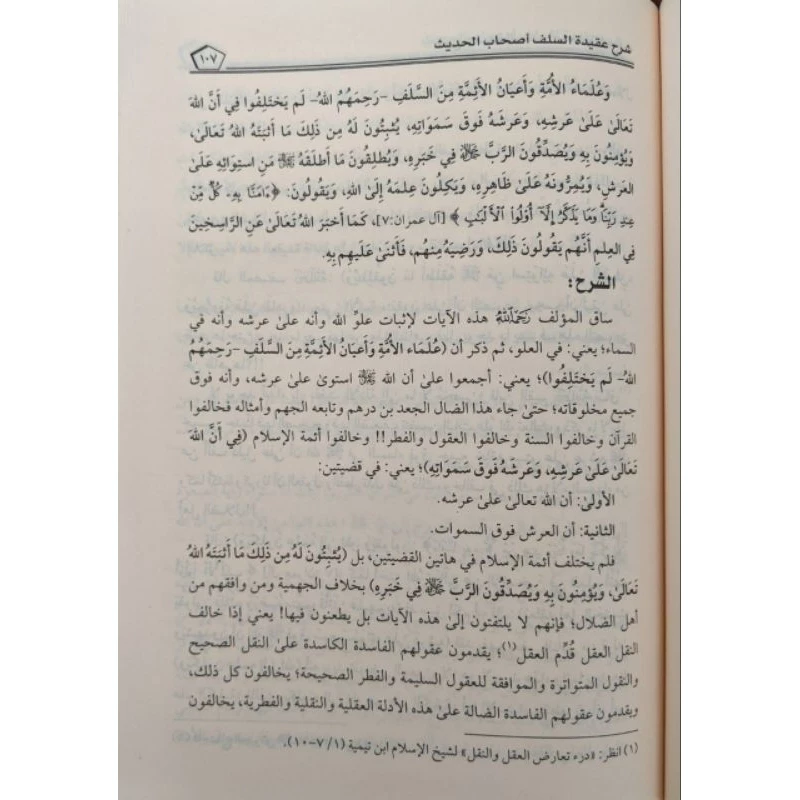 شرح عقيدة السلف أصحاب الحديث
١٠٧
وَعُلَمَاءُ الأُمَّةِ وَأَعيَانُ الأَئِمَّةِ مِنَ السَّلَفِ -رَحِمَهُمُ اللهُ- لَم يَختَلِفُوا فِي أَنَّ اللهَ
تَعَالَىٰ عَلَىٰ عَرشِهِ، وَعَرشَهُ فَوقَ سَمَوَاتِهِ، يُثبِتُونَ لَهُ مِن ذَلِكَ مَا أَثبَتَهُ اللهُ تَعَالَىٰ،
وَيُؤمِنُونَ بِهِ وَيُصَدِّقُونَ الرَّبَّ ﷻ فِي خَبَرِهِ، وَيُطلِقُونَ مَا أَطلَقَهُ ﷻ مَن استِوَائِهِ عَلَىٰ
العَرشِ، وَيُمِرُّونَهُ عَلَىٰ ظَاهِرِهِ، وَيَكِلُونَ عِلمَهُ إِلَىٰ اللهِ، وَيَقُولُونَ: ﴿ءَامَنَّا بِهِۦ كُلٌّ مِّنْ
عِندِ رَبِّنَاۗ وَمَا يَذَّكَّرُ إِلَّآ أُوْلُواْ ٱلْأَلْبَٰبِ﴾ [آل عمران:٧]، كَمَا أَخبَرَ اللهُ تَعَالَىٰ عَنِ الرَّاسِخِينَ
فِي العِلمِ أَنَّهُم يَقُولُونَ ذَلِكَ، وَرَضِيَهُ مِنهُم، فَأَثنَىٰ عَلَيهِم بِهِ.
الشرح:
ساق المؤلف رَحِمَهُ اللَّهُ هذه الآيات لإثبات علوِّ الله وأنه علىٰ عرشه وأنه في
السماء؛ يعني: في العلو، ثم ذكر أن (عُلَمَاء الأُمَّةِ وَأَعيَانُ الأَئِمَّةِ مِنَ السَّلَفِ -رَحِمَهُمُ
اللهُ- لَم يَختَلِفُوا)؛ يعني: أجمعوا علىٰ أن الله ﷻ استوىٰ علىٰ عرشه، وأنه فوق
جميع مخلوقاته؛ حتىٰ جاء هذا الضال الجعد بن درهم وتابعه الجهم وأمثاله فخالفوا
القرآن وخالفوا السنة وخالفوا العقول والفطر!! وخالفوا أئمة الإسلام (فِي أَنَّ اللهَ
تَعَالَىٰ عَلَىٰ عَرشِهِ، وَعَرشَهُ فَوقَ سَمَوَاتِهِ)؛ يعني: في قضيتين:
الأولىٰ: أن الله تعالىٰ علىٰ عرشه.
الثانية: أن العرش فوق السموات.
فلم يختلف أئمة الإسلام في هاتين القضيتين، بل (يُثبِتُونَ لَهُ مِن ذَلِكَ مَا أَثبَتَهُ اللهُ
تَعَالَىٰ، وَيُؤمِنُونَ بِهِ وَيُصَدِّقُونَ الرَّبَّ ﷻ فِي خَبَرِهِ) بخلاف الجهمية ومن وافقهم من
أهل الضلال؛ فإنهم لا يلتفتون إلىٰ هذه الآيات بل يطعنون فيها! يعني إذا خالف
النقل العقل قُدِّم العقل(١)؛ يقدمون عقولهم الفاسدة الكاسدة علىٰ النقل الصحيح
والنقول المتواترة والموافقة للعقول السليمة والفطر الصحيحة؛ يخالفون كل ذلك،
ويقدمون عقولهم الفاسدة الضالة علىٰ هذه الأدلة العقلية والنقلية والفطرية، يخالفون
(١) انظر: «درء تعارض العقل والنقل» لشيخ الإسلام ابن تيمية (١/ ٧-١٠).